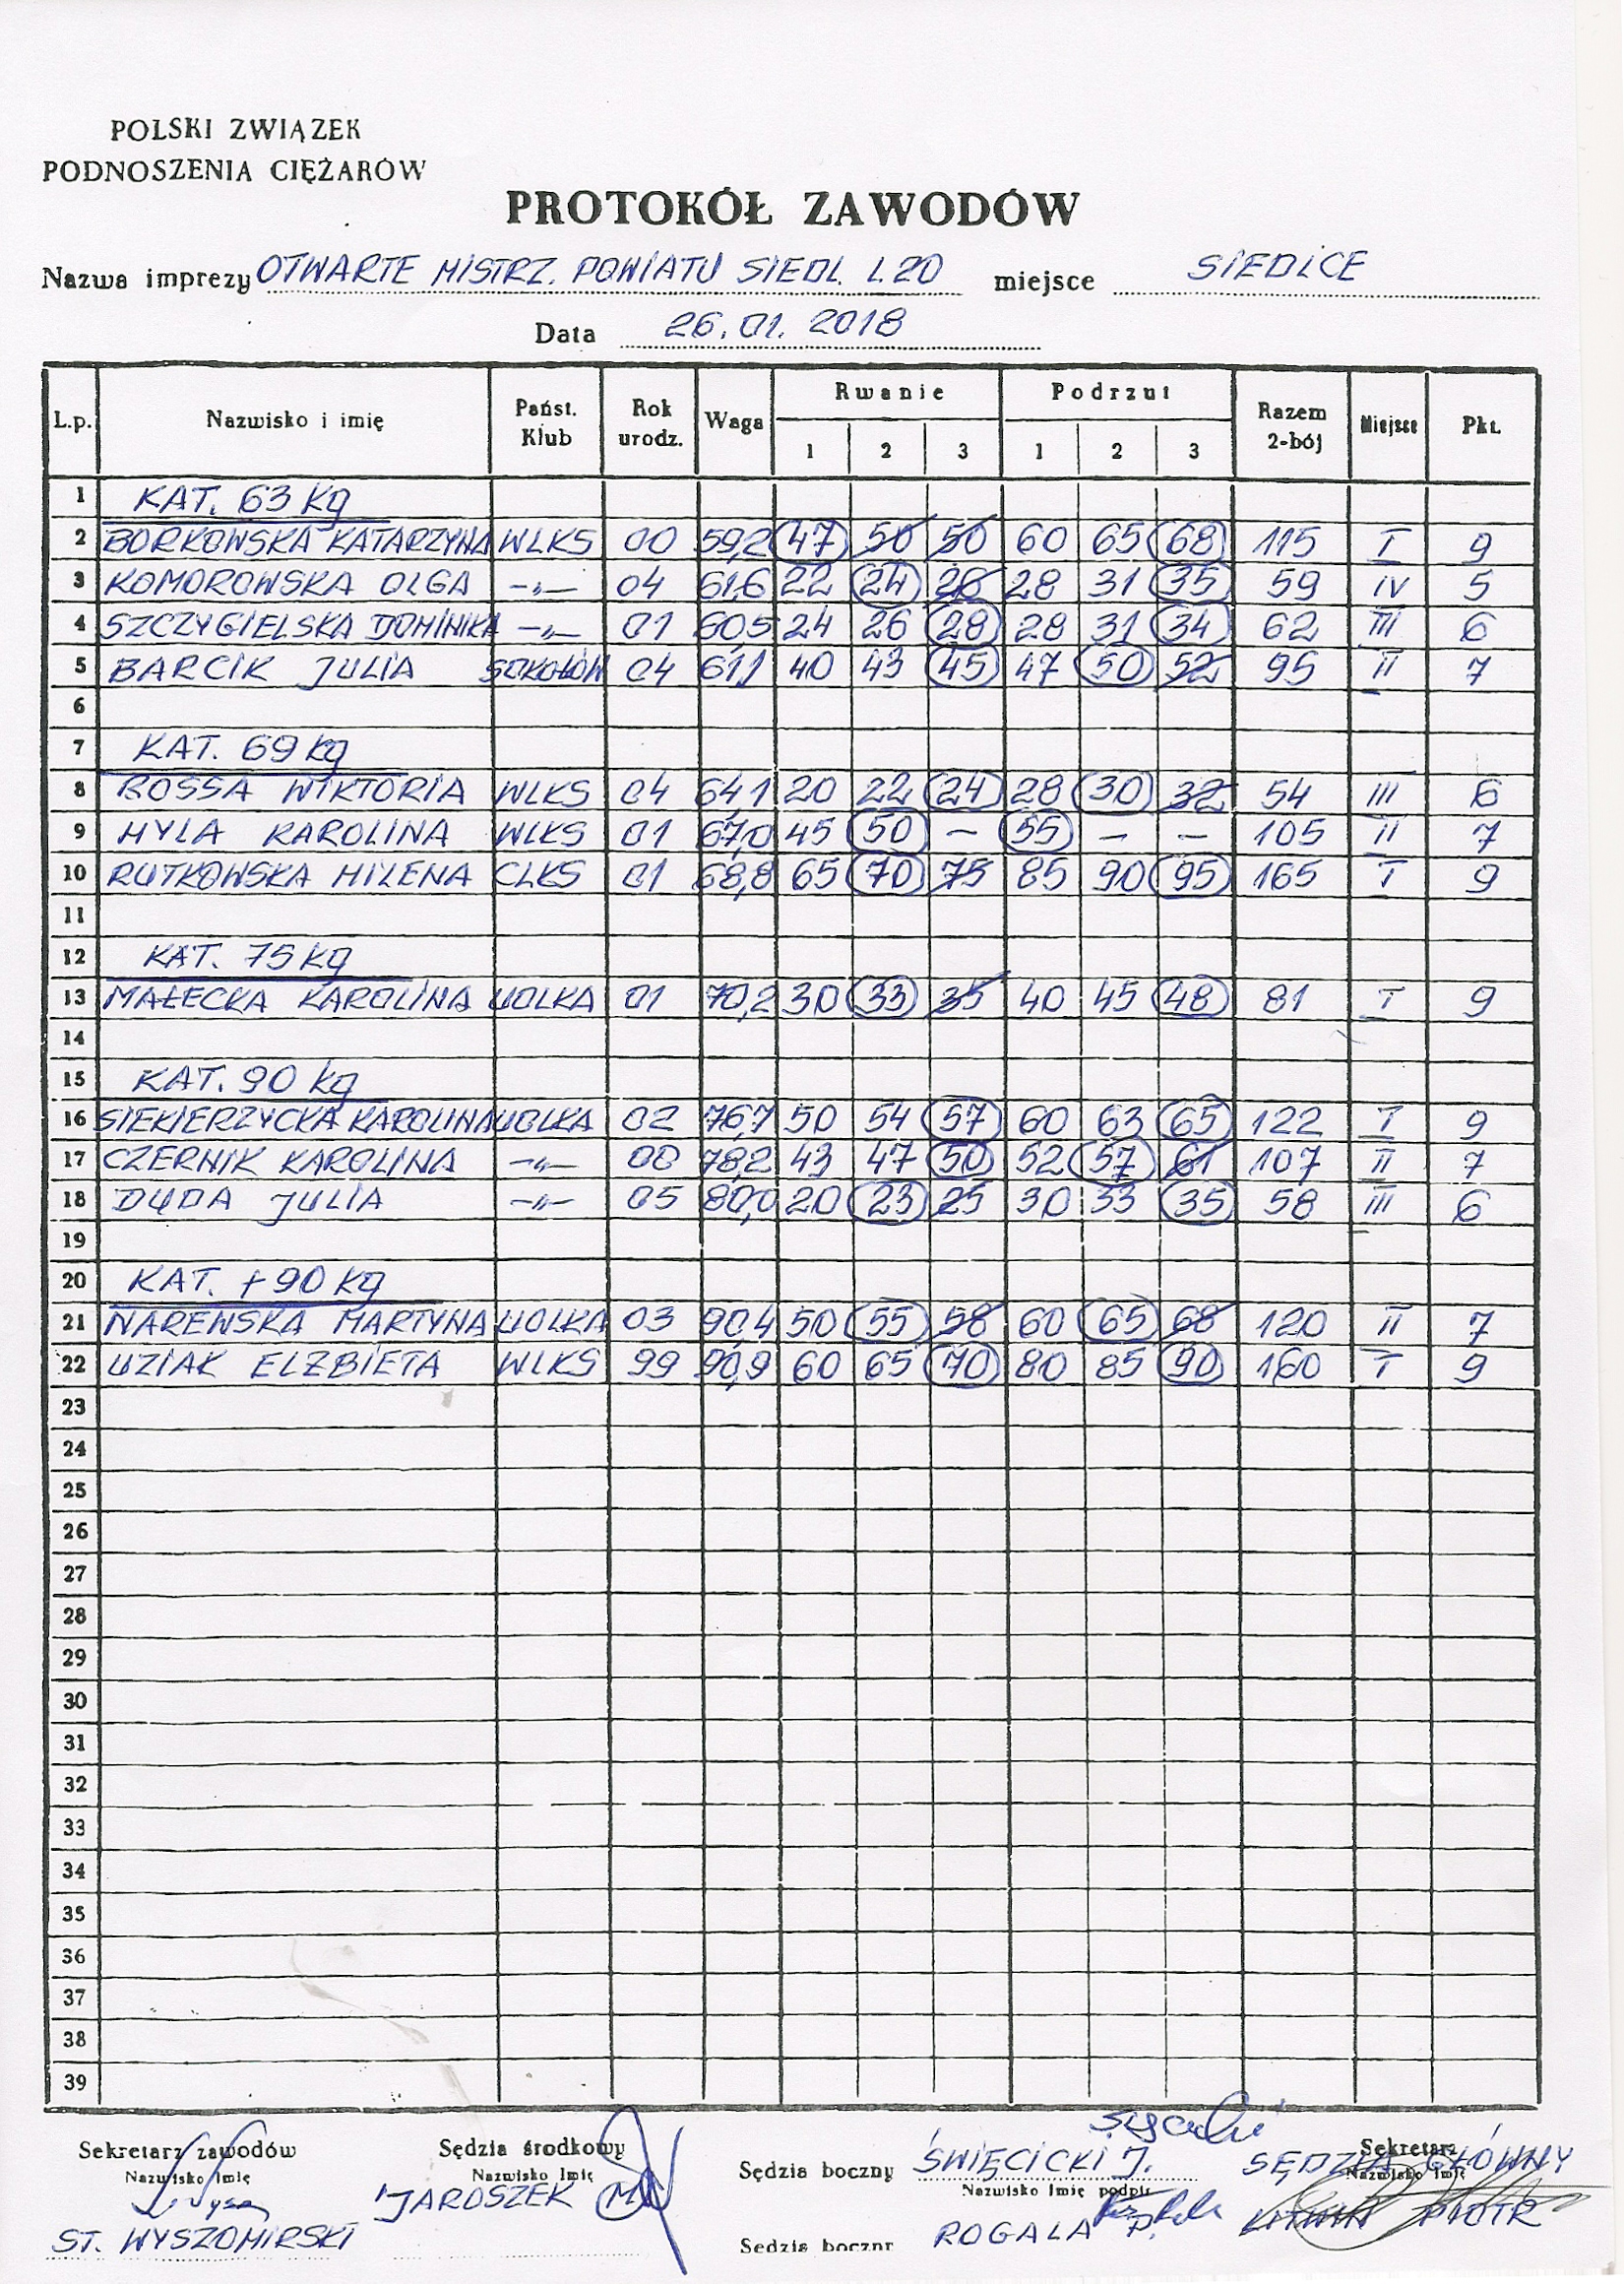 POLSKI ZWIĄZEK
PODNOSZENIA CIĘŻARÓW
PROTOKÓŁ ZAWODÓW
Nazwa imprezy OTWARTE MISTRZ. POWIATU SIEDL. L.20 miejsce SIEDLCE
Data 26.01.2018
L.p. Nazwisko i imię Państ. Klub Rok urodz. Waga Rwanie 1 2 3 Podrzut 1 2 3 Razem 2-bój Miejsce Pkt.
1 KAT. 63 kg
2 BORKOWSKA KATARZYNA WLKS 00 59,2 47 50 50 60 65 68 115 I 9
3 KOMOROWSKA OLGA -„- 04 61,6 22 24 26 28 31 35 59 IV 5
4 SZCZYGIELSKA DOMINIKA -„- 01 60,5 24 26 28 28 31 34 62 III 6
5 BARCIK JULIA SOKOŁÓW 04 61,1 40 43 45 47 50 52 95 II 7
6
7 KAT. 69 kg
8 ROSSA WIKTORIA WLKS 04 64,1 20 22 24 28 30 32 54 III 6
9 HYLA KAROLINA WLKS 01 67,0 45 50 – 55 – – 105 II 7
10 RUTKOWSKA MILENA CLKS 01 68,8 65 70 75 85 90 95 165 I 9
11
12 KAT. 75 kg
13 MAŁECKA KAROLINA UOLKA 01 70,2 30 33 35 40 45 48 81 I 9
14
15 KAT. 90 kg
16 SIEKIERZYCKA KAROLINA UOLKA 02 76,7 50 54 57 60 63 65 122 I 9
17 CZERNIK KAROLINA -„- 00 78,2 43 47 50 52 57 61 107 II 7
18 DUDA JULIA -„- 05 80,0 20 23 25 30 33 35 58 III 6
19
20 KAT. +90 kg
21 NAREWSKA MARTYNA UOLKA 03 90,4 50 55 58 60 65 68 120 II 7
22 UZIAK ELZBIETA WLKS 99 90,9 60 65 70 80 85 90 160 I 9
23
24
25
26
27
28
29
30
31
32
33
34
35
36
37
38
39
Sekretarz zawodów Sędzia środkowy Sędzia boczny ŚWIĘCICKI J. Sekretarz SĘDZIA GŁÓWNY
Nazwisko Imię Nazwisko Imię Nazwisko Imię podpis Nazwisko Imię
ST. WYSZOMIRSKI JAROSZEK M Sędzia boczny ROGALA P. LITWIN PIOTR